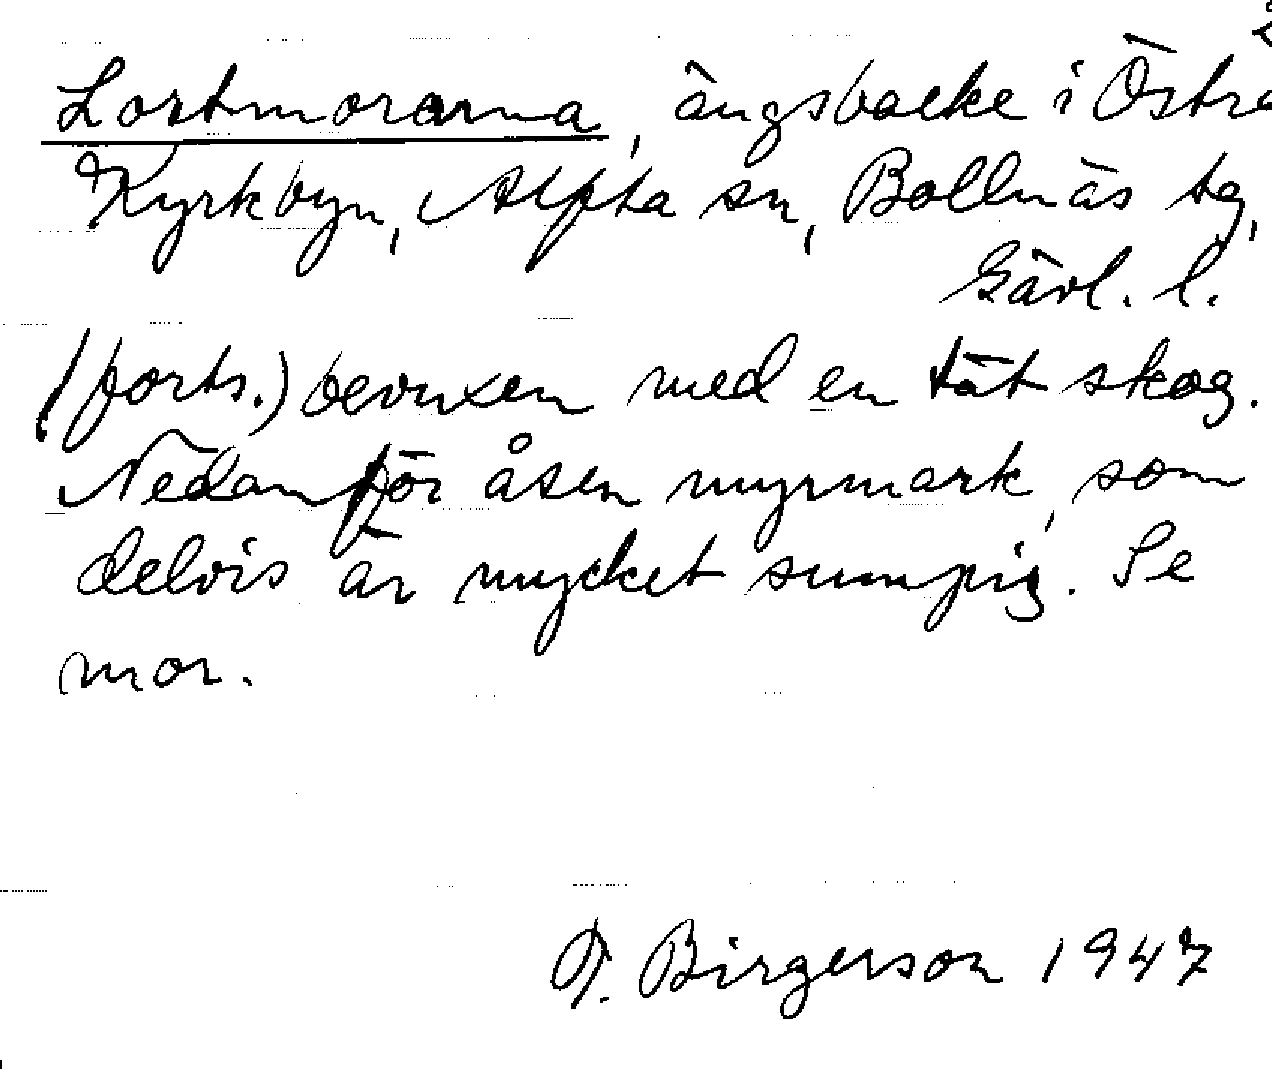 Lortmorarna, ängsbacke i Östra
Kyrkbyn, Alfta sn, Bollnäs tg,
Gävl. l.
(forts.) bevuxen med en tät skog.
Nedanför åsen myrmark, som
delvis är mycket sumpig. Se
mor.
Birgerson 1947